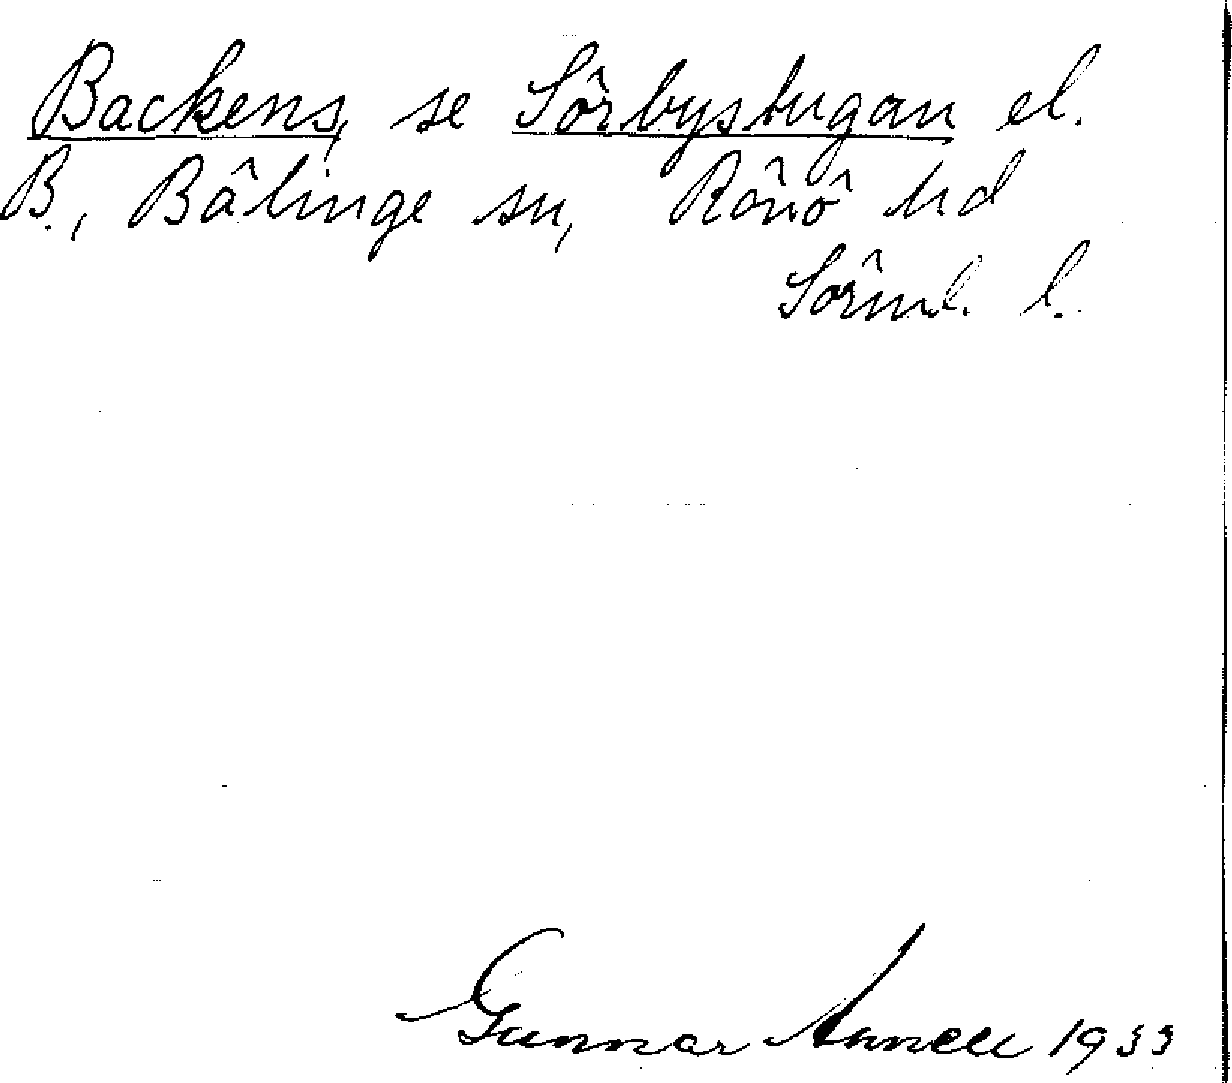 Backens, se Sörbystugan el.
B., Bälinge sn, Rönö hd
Sörml. l.
Gunnar Annell 1933